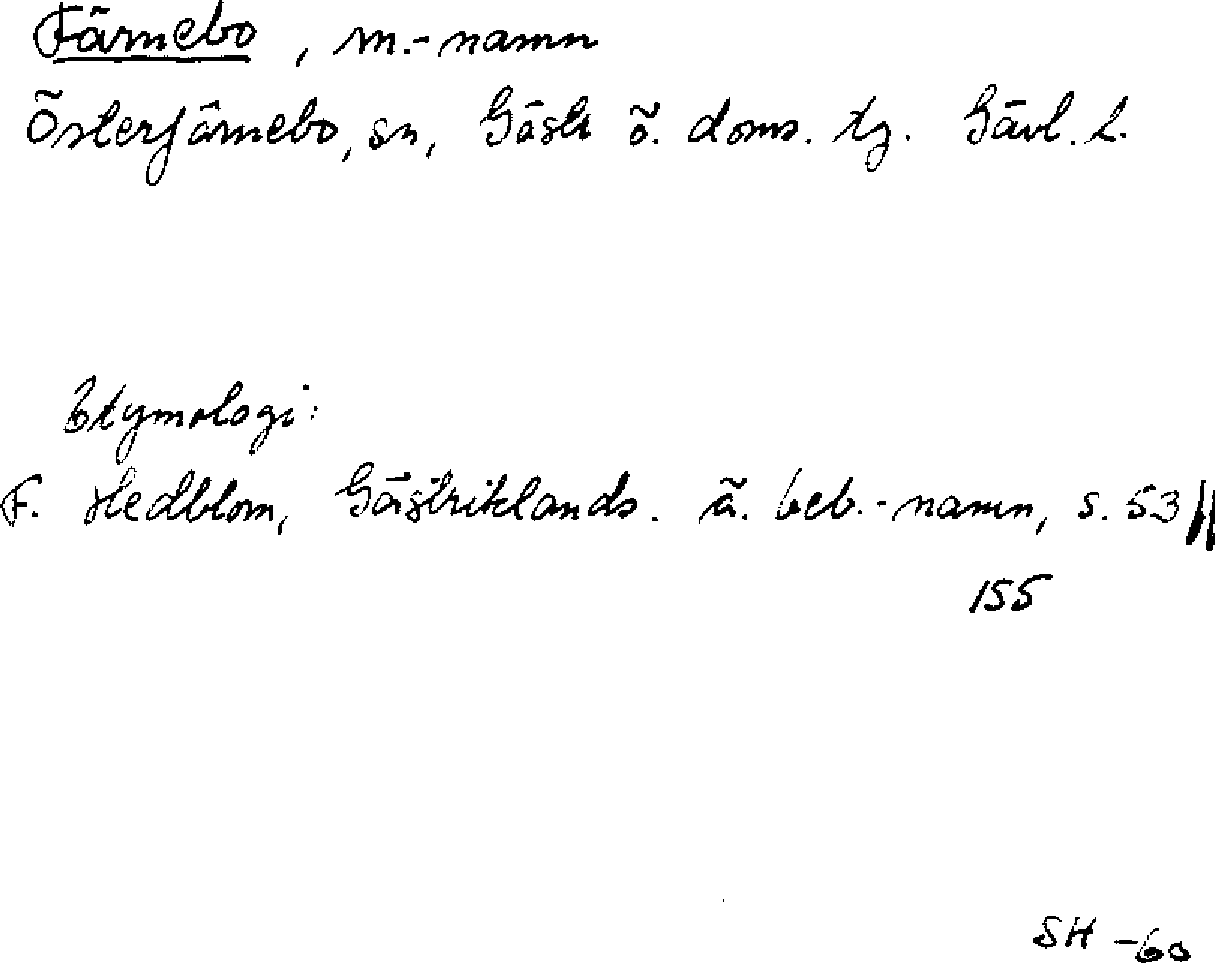 Färnebo, sn.-namn
Österfärnebo, sn, Gästr ö. doms. tg. Gävl. l.
Etymologi:
F. Hedblom, Gästriklands. ä. beb.-namn, s. 53 ff
155
SH -60